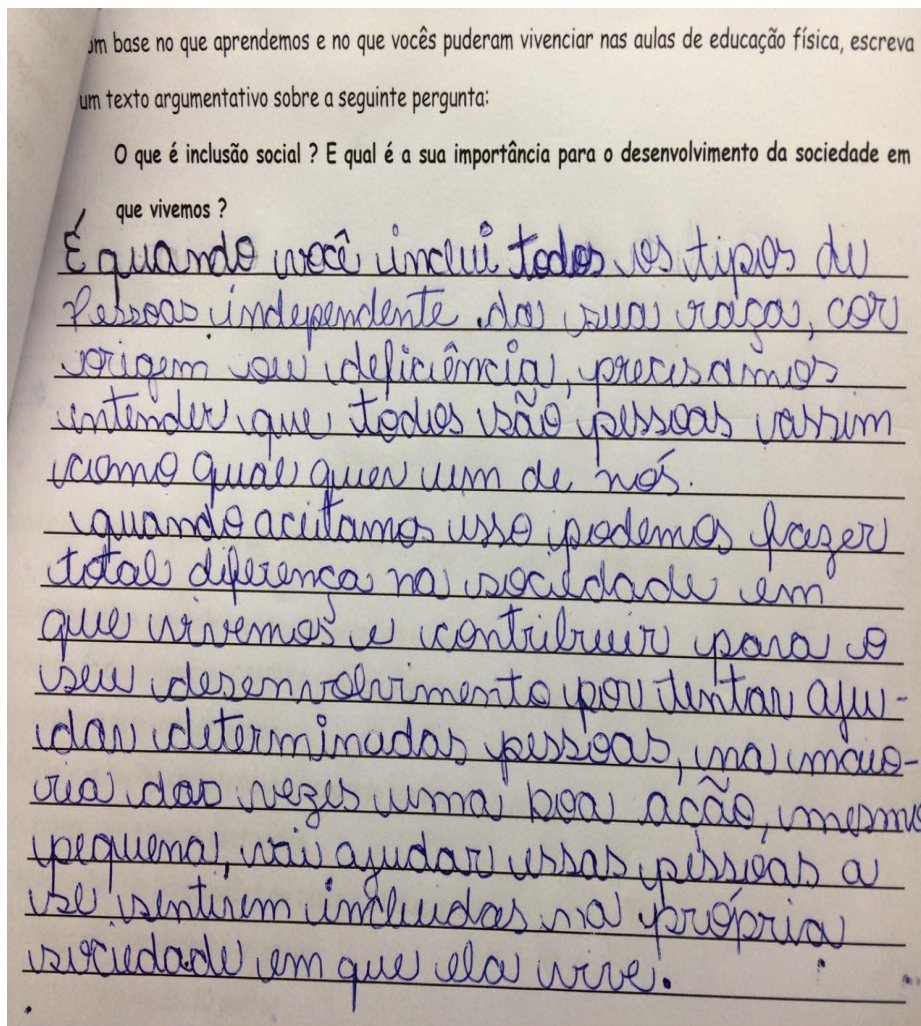 om base no que aprendemos e no que vocês puderam vivenciar nas aulas de educação física, escreva
um texto argumentativo sobre a seguinte pergunta:
O que é inclusão social ? E qual é a sua importância para o desenvolvimento da sociedade em
que vivemos ?
É quando você inclui todos os tipos de
Pessoas independente da sua raça, cor
origem ou deficiência, precisamos
entender que todos são pessoas assim
como qual quer um de nós.
quando aceitamos isso podemos fazer
total diferença na sociedade em
que vivemos e contribuir para o
seu desenvolvimento por tentar aju-
dar determinadas pessoas, na maio-
ria das vezes uma boa ação, mesmo
pequena, vai ajudar essas pessoas a
se sentirem incluidas na própria
sociedade em que ela vive.